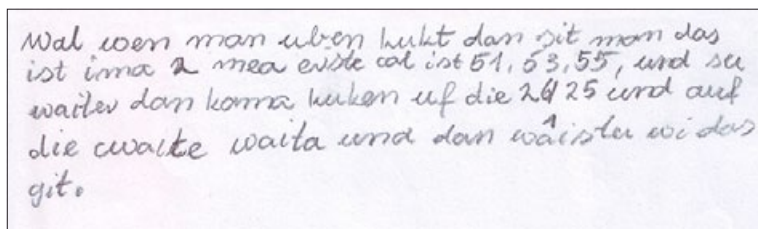 Wal wen man uben kukt dan sit man das
ist ima 2 mea erste cal ist 51, 53, 55, und su
waiter dan koma kuken uf die 24 25 und auf
die cwaite waita und dan waistu wi das
git.